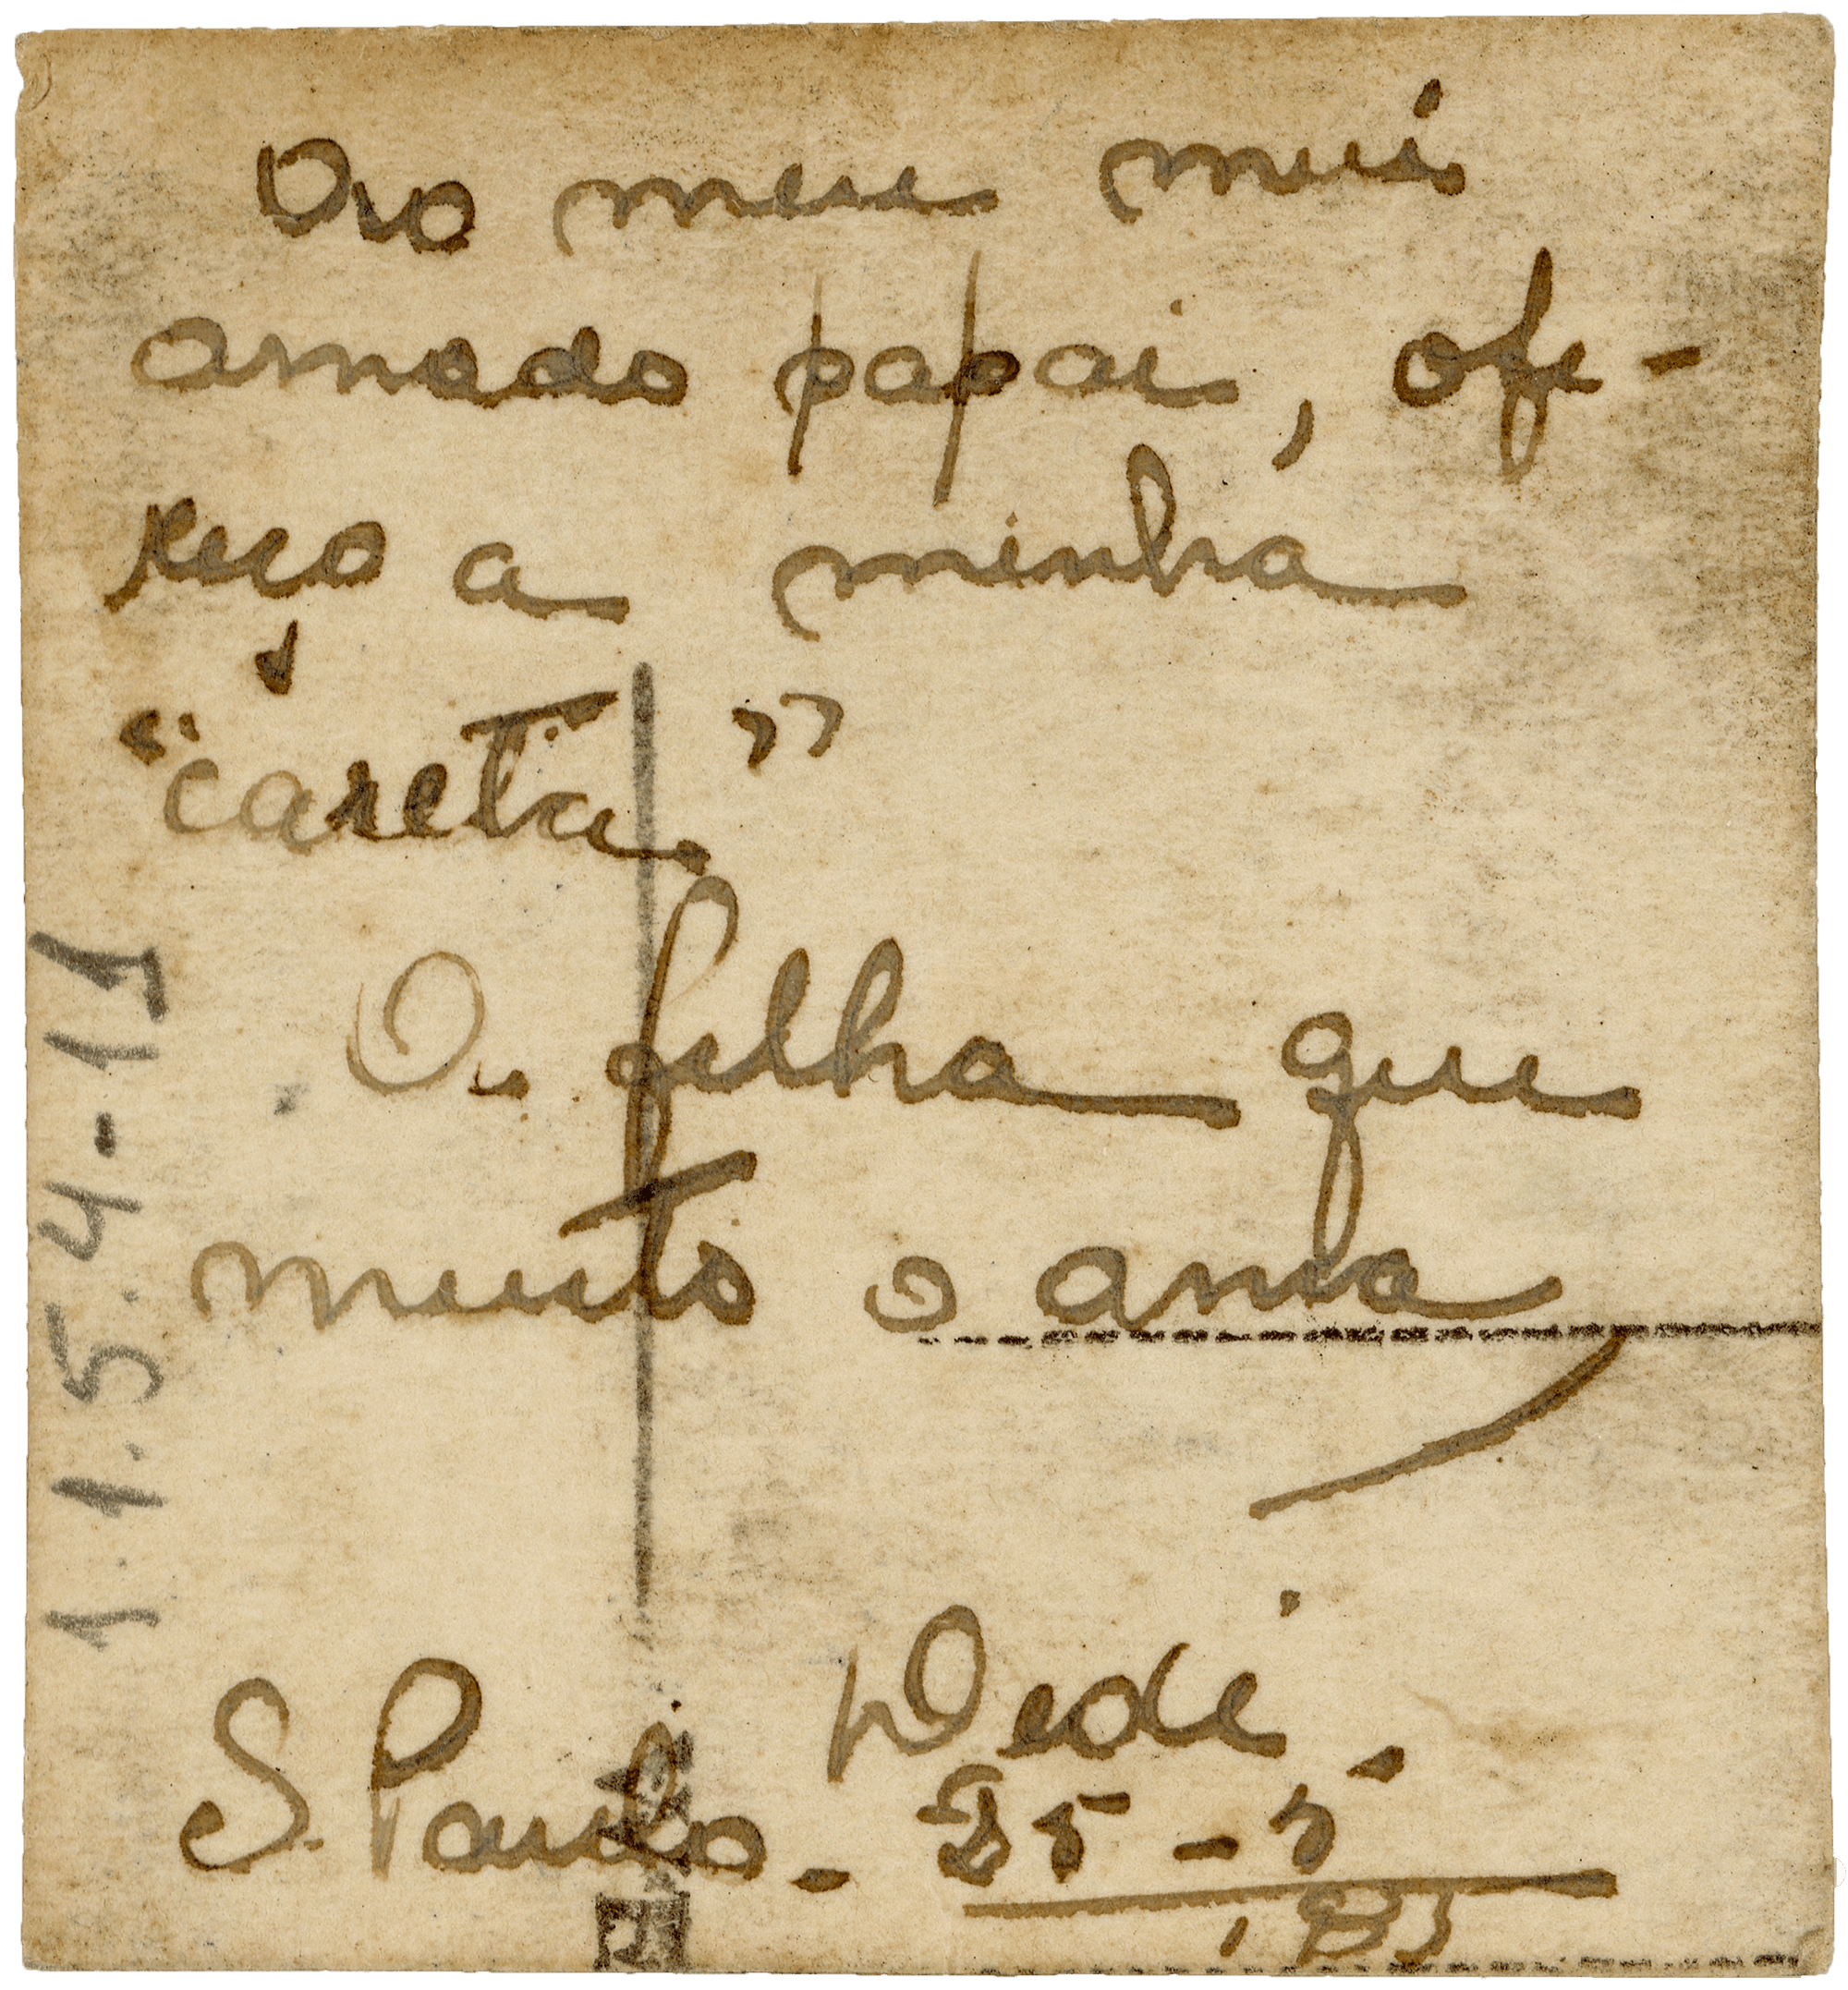 Ao meu mui
amado papai, ofe-
reço a minha
"careta"
A filha que
muito o ama
Dedé.
S. Paulo - 25-5
1.1.5.4-11